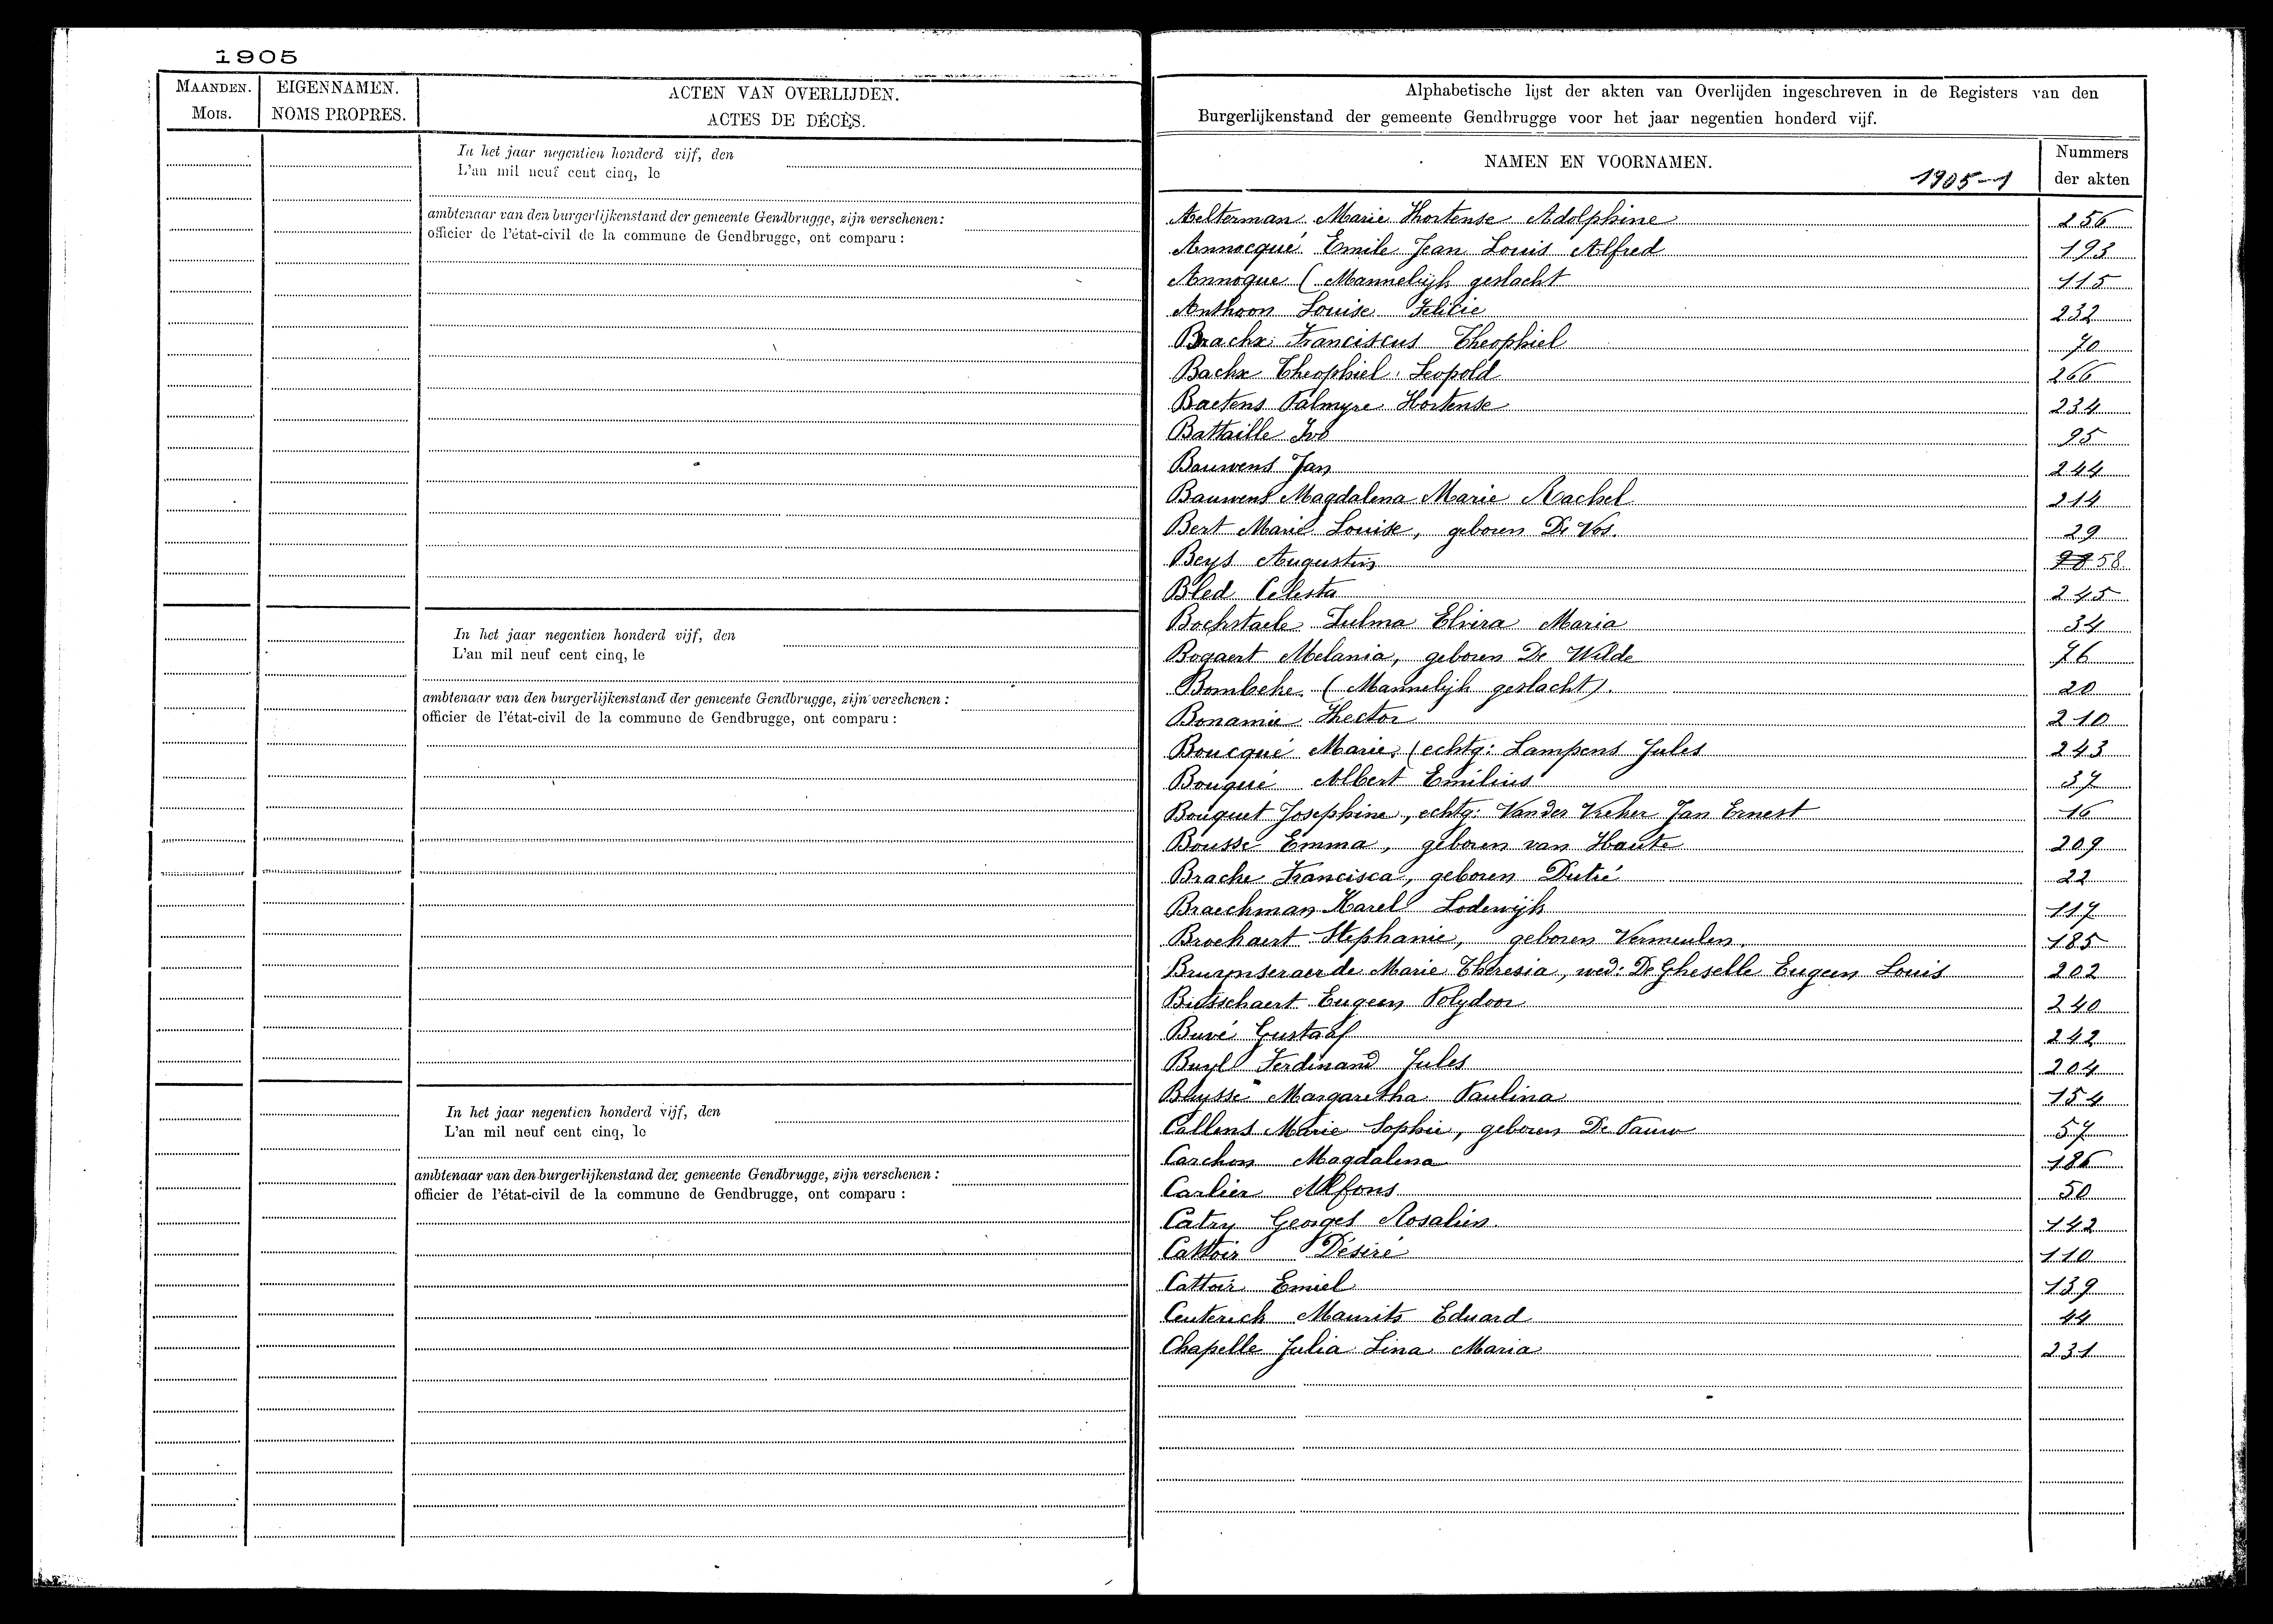 1905
MAANDEN.
Mois.
EIGENNAMEN.
NOMS PROPRES.
ACTEN VAN OVERLIJDEN.
ACTES DE DÉCÈS.
In het jaar negentien honderd vijf, den
L'an mil neuf cent cinq, le
ambtenaar van den burgerlijkenstand der gemeente Gendbrugge, zijn verschenen:
officier de l'état-civil de la commune de Gendbrugge, ont comparu :
In het jaar negentien honderd vijf, den
L'an mil neuf cent cinq, le
ambtenaar van den burgerlijkenstand der gemeente Gendbrugge, zijn verschenen :
officier de l'état-civil de la commune de Gendbrugge, ont comparu :
In het jaar negentien honderd vijf, den
L'an mil neuf cent cinq, le
ambtenaar van den burgerlijkenstand der gemeente Gendbrugge, zijn verschenen :
officier de l'état-civil de la commune de Gendbrugge, ont comparu :
Alphabetische lijst der akten van Overlijden ingeschreven in de Registers van den
Burgerlijkenstand der gemeente Gendbrugge voor het jaar negentien honderd vijf.
NAMEN EN VOORNAMEN. 1905-1
Nummers
der akten
Aelterman Marie Hortense Adolphine 256
Annocqué Emile Jean Louis Alfred 193
Annoque (Mannelijk geslacht 115
Anthoon Louise Felicie 232
Brackx Franciscus Theophiel 70
Backx Theophiel Leopold 266
Baetens Palmyre Hortense 234
Battaille Ivo 95
Bauwens Jan 244
Bauwens Magdalena Marie Rachel 214
Bert Marie Louise, geboren De Vos. 29
Beys Augustin 58
Bled Celesta 245
Bockstaele Zulma Elvira Maria 34
Bogaert Melania, geboren De Wilde 76
Bombeke (Mannelijk geslacht). 20
Bonamie Hector 210
Boucqué Marie, (echtg: Lampens Jules 243
Bouqué Albert Emilius 37
Bouquet Josephine, echtg: Vander Vreken Jan Ernest 16
Bousse Emma, geboren van Haute 209
Brache Francisca, geboren Dutré 22
Braeckman Karel Lodewijk 117
Brockaert Stephanie, geboren Vermeulen. 185
Bruynseraerde Marie Theresia, wed: De Gheselle Eugeen Louis 202
Butsschaert Eugeen Polydoor 240
Buvé Gustaaf 242
Buyl Ferdinand Jules 204
Buysse Margaretha Paulina 154
Callens Marie Sophie, geboren De Pauw 57
Carchon Magdalena 186
Carlier Alfons 50
Catry Georges Rosalien. 142
Cattoir Désiré 110
Cattoir Emiel 139
Ceuterick Maurits Eduard 44
Chapelle Julia Lina Maria 231